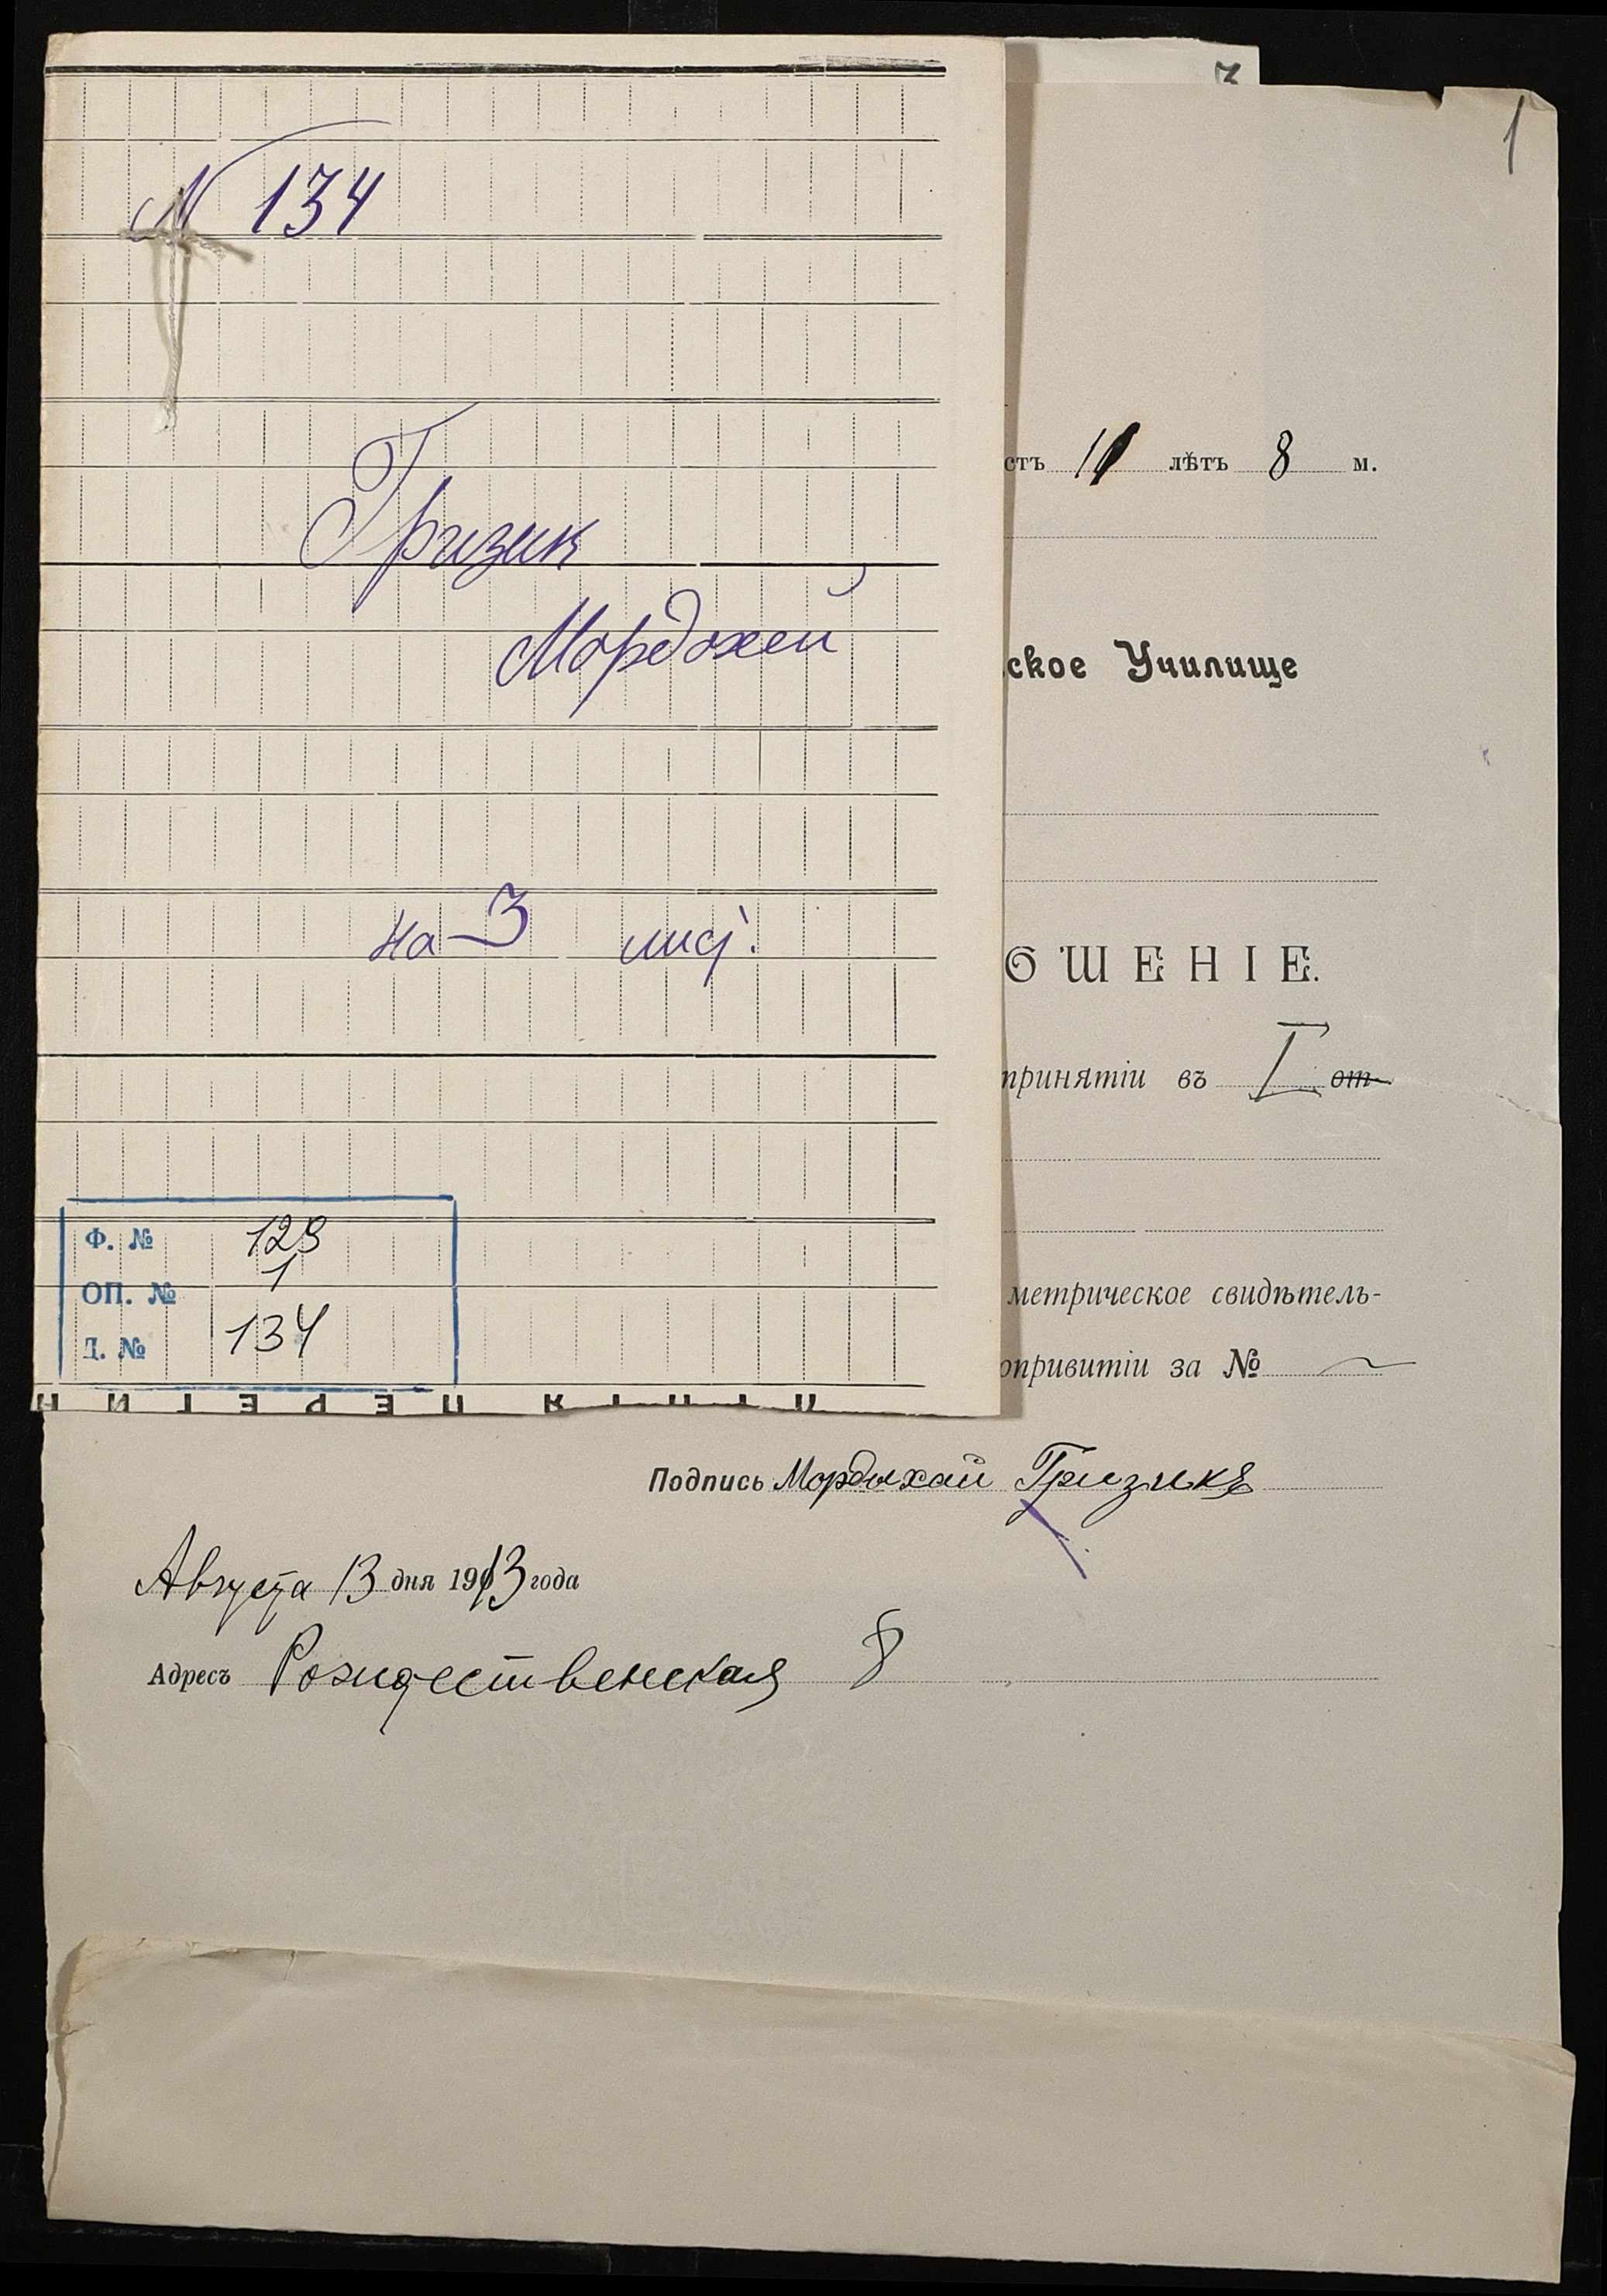 N 134
Гризик
Мордохей
на 3 лист.
Ф. № 129
ОП. № 1
Д. № 134
1
стъ 11 лѣтъ 8 м.
ское Училище
ОШЕНІЕ.
принятіи въ I от-
метрическое свидѣтель-
опривитіи за №
Подпись Мордухай Гризикъ
Августа 13 дня 1913 года
Адресъ Рождественская 8